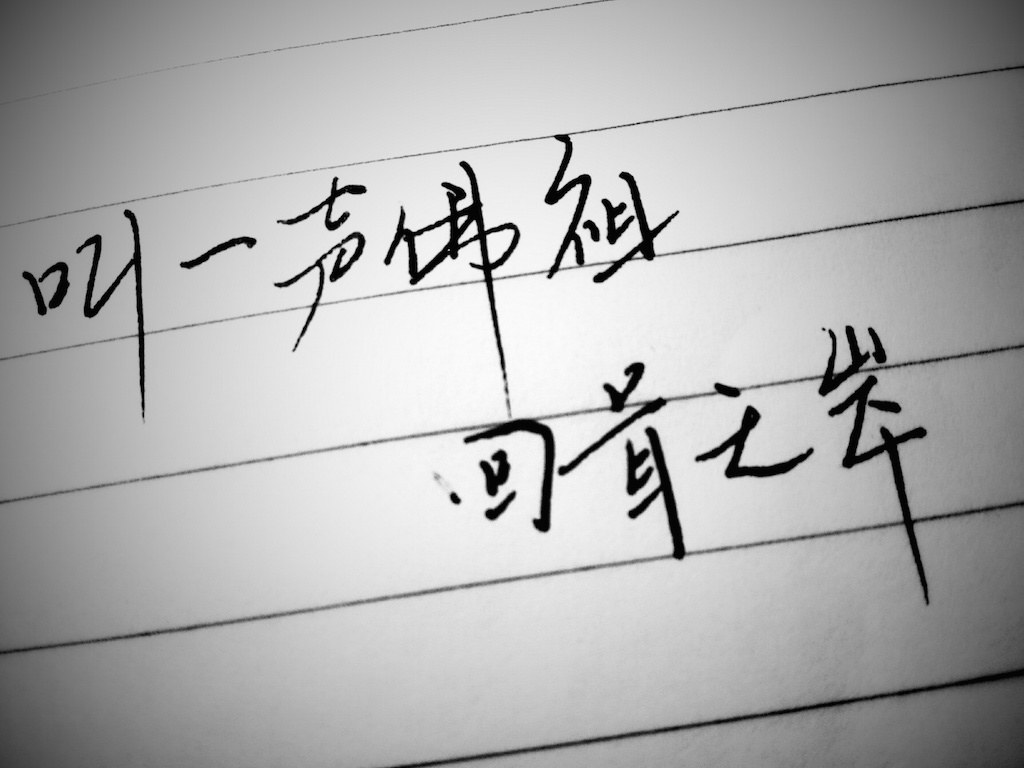 叫一声佛祖
回首无岸